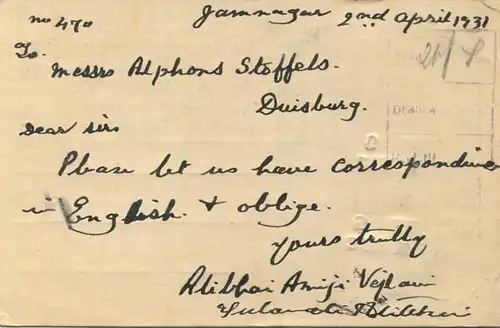 no 470 Jamnagar 2nd April 1931
To.
Messrs Alphons Stoffels.
Duisburg.
Dear sir
Please let us have correspondence
in English. & oblige.
yours trully
Alibhai Amiji Vejlani